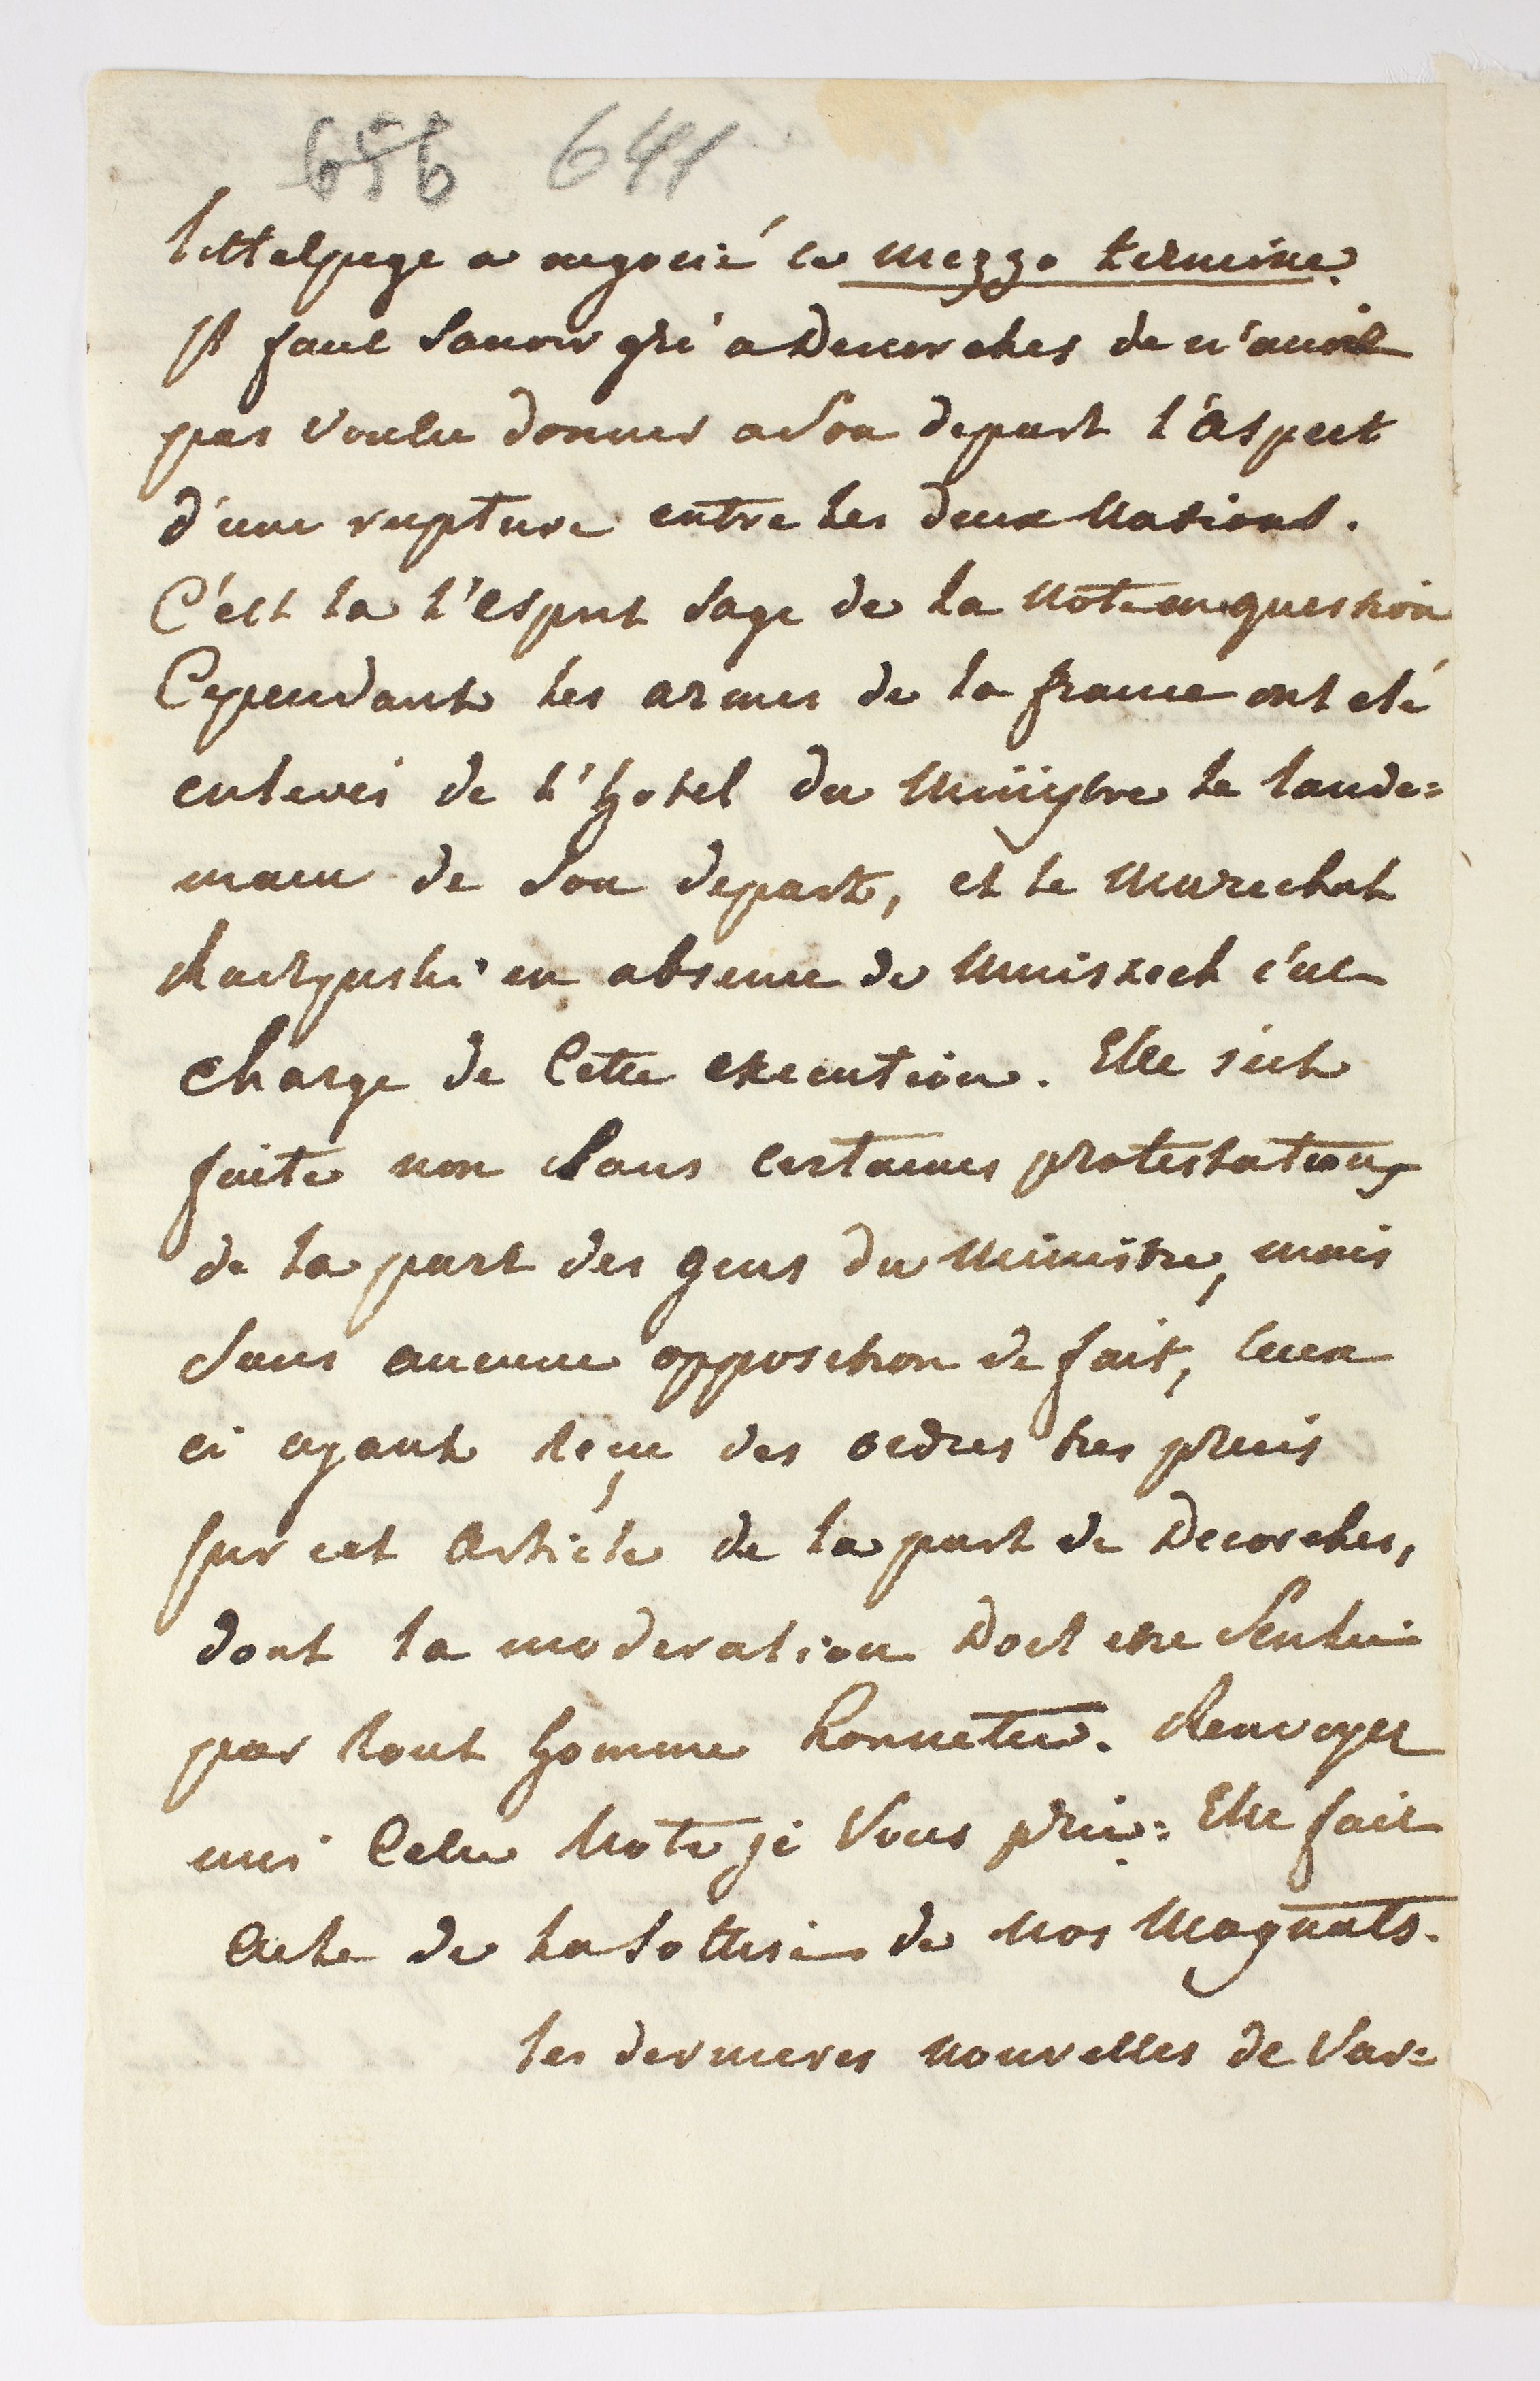 656 641
littelpage a negocié ce mezzo termine.
Il faut Savoir gré a Decorches de n'avoir
pas voulu donner a Son depart l'aspect
d'une rupture entre les deux Nations.
C'est la l'esprit Sage de la Note en question
Cependant les armes de la france ont eté
enlevés de l'hotel du Miniystre le lande=
main de Son depart, et le Marechal
Raczynski en absence de Mniszech s'est
charge de Cette execution. Elle s'est
faite non Sans certaines protestations
de la part des gens du Ministre, mais
Sans aucune opposition de fait, Ceux
ci ayant reçu des ordres tres precis
Sur cet Article de la part de Decorches,
dont la moderation Doit etre Sentuie
par tout homme honnete. Renvoyer
moi Cette Note je Vous prie: Elle fait
Acte de la Sottise de Nos Magnats.
les dernieres nouvelles de Var=